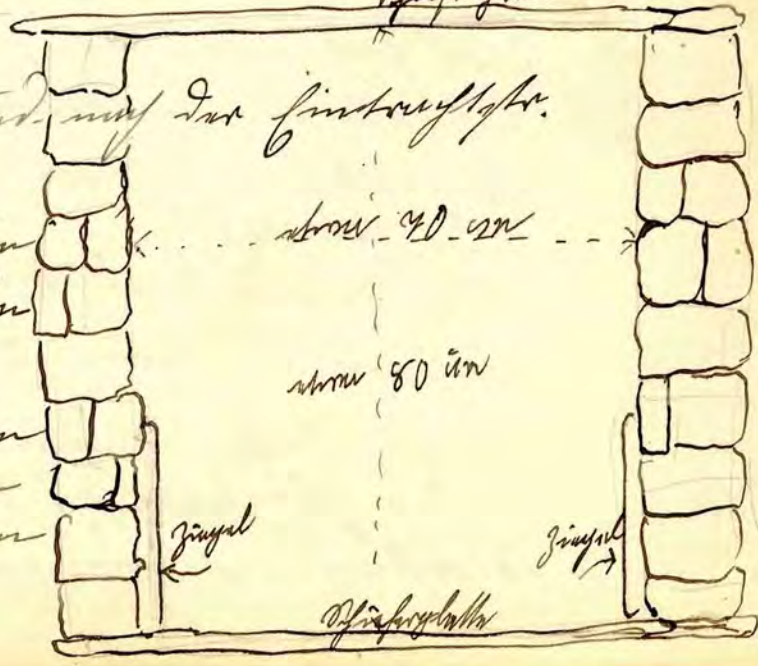 nach der Eintrachtstr.
etwa 70 cm
etwa 80 cm
Ziegel
Ziegel
Schieferplatte